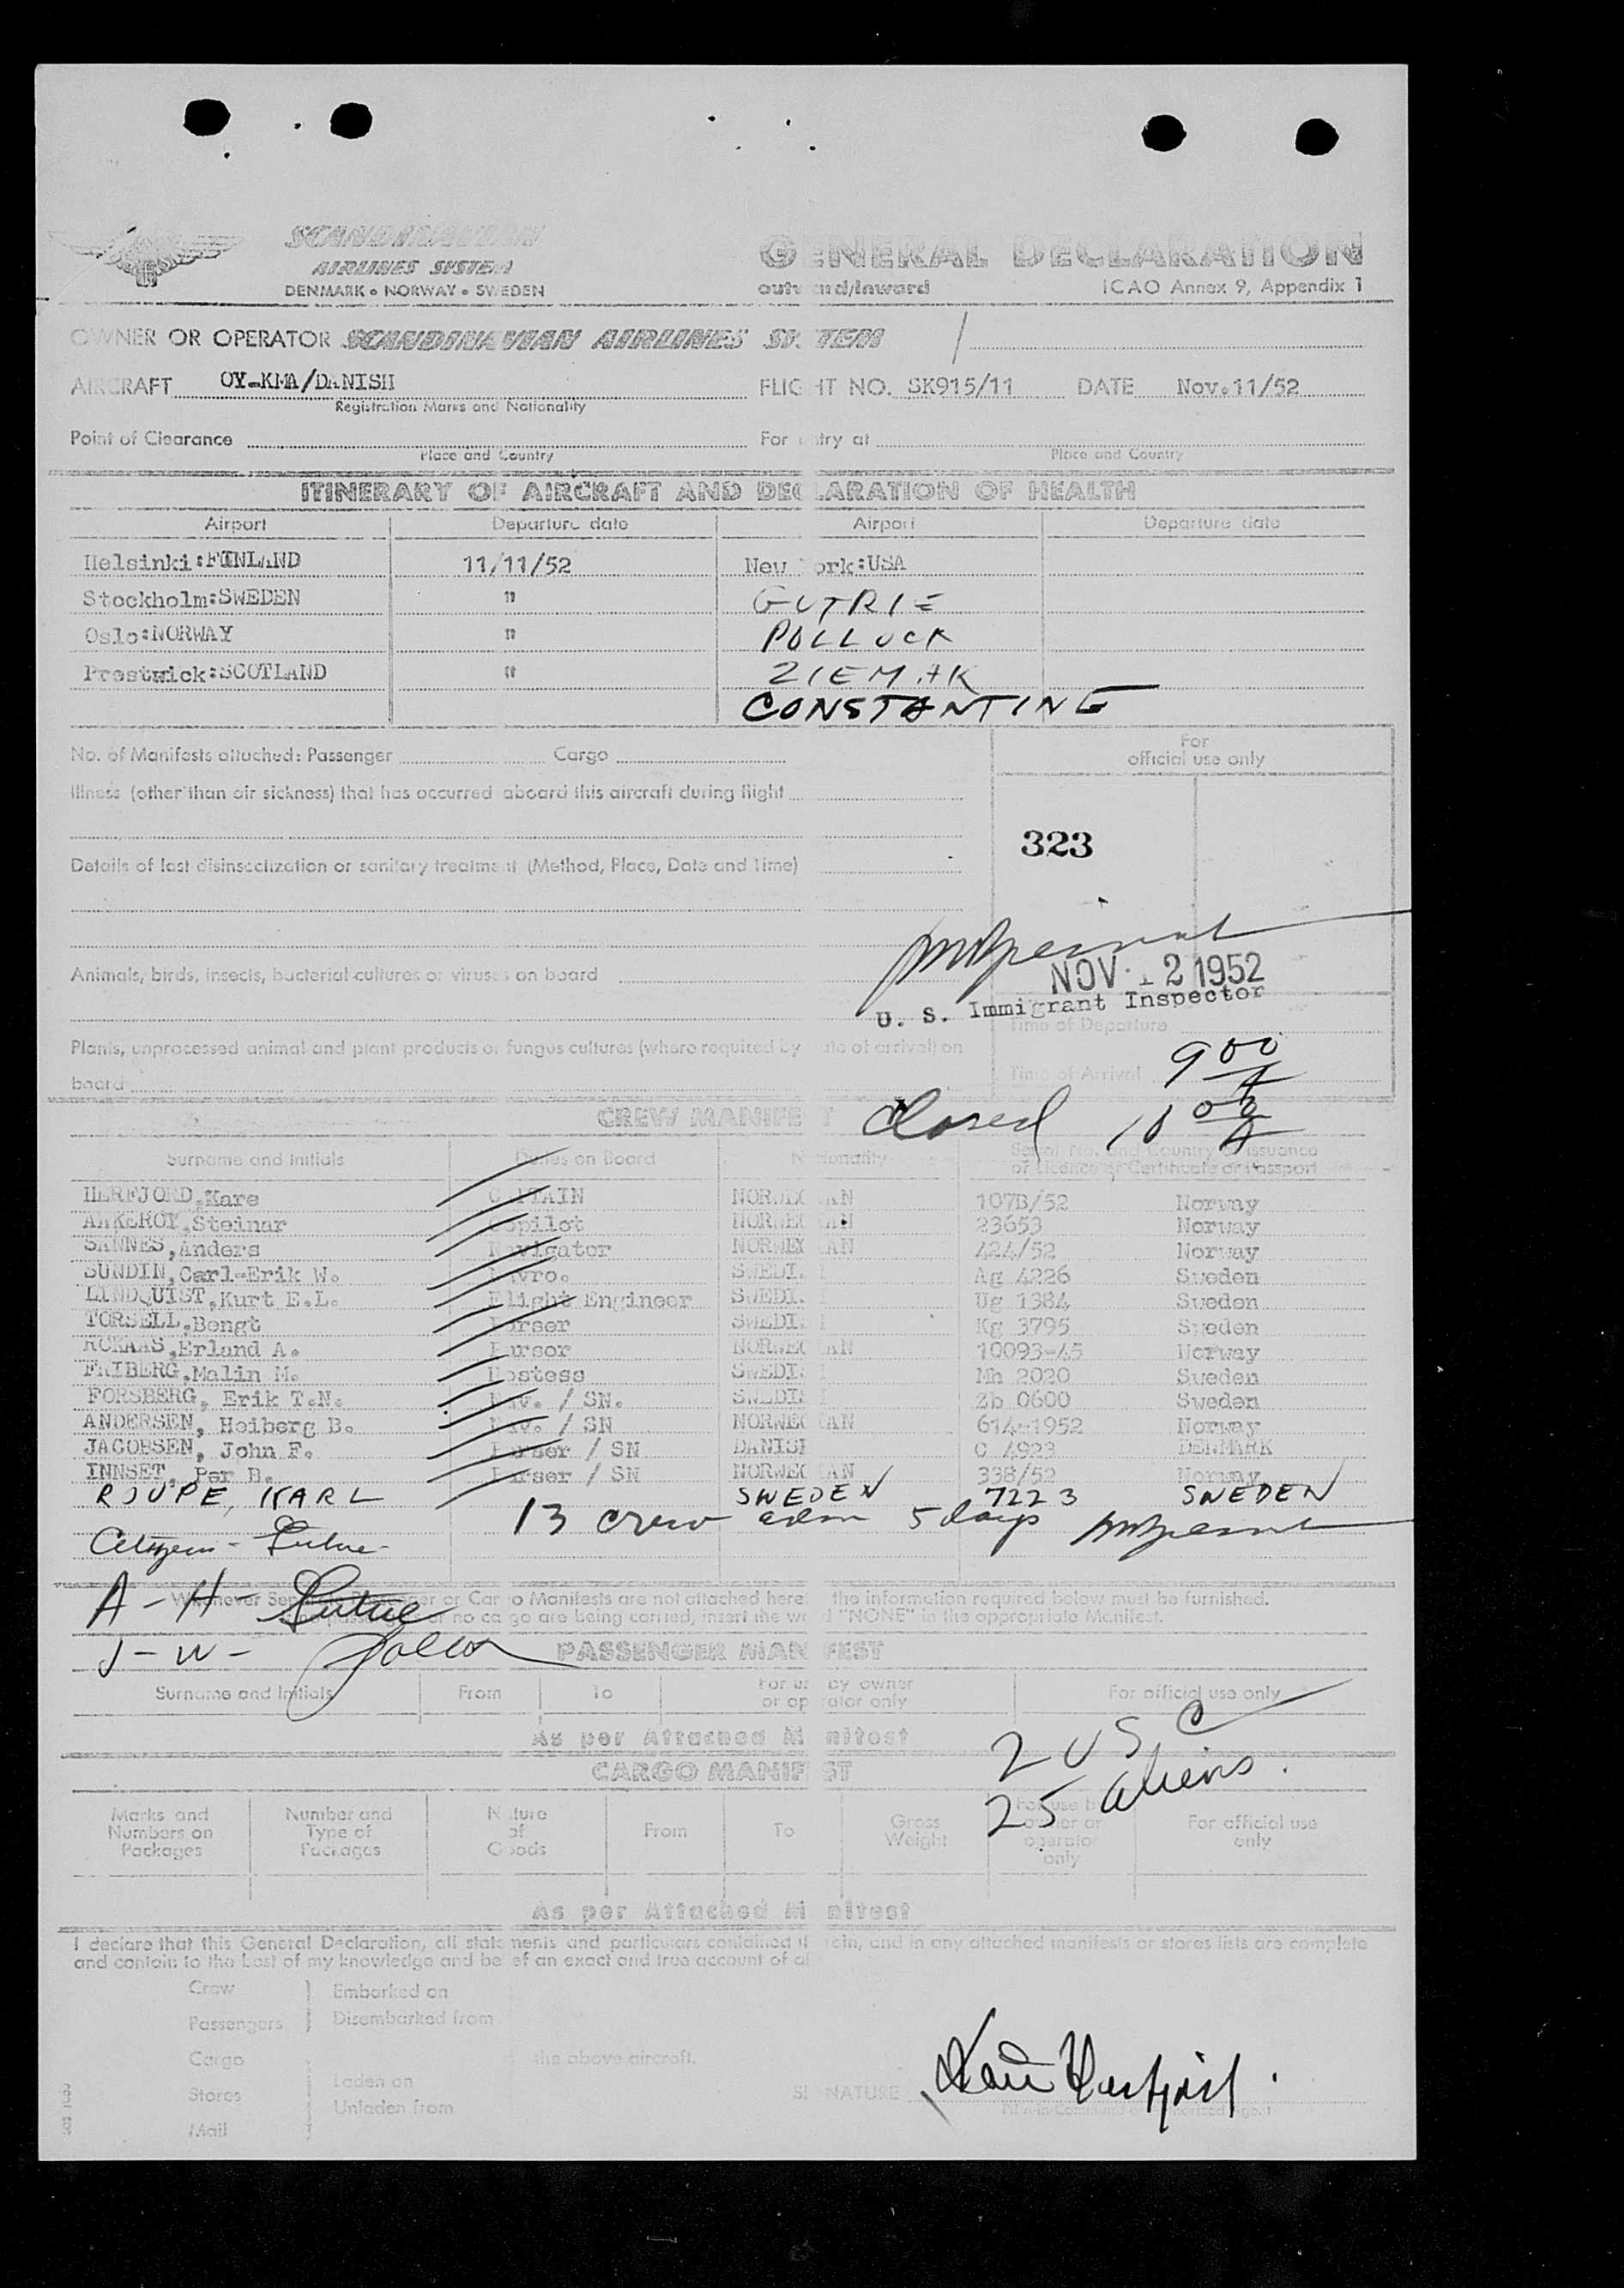 SCANDINAVIAN
AIRLINES SYSTEM
DENMARK • NORWAY • SWEDEN
GENERAL DECLARATION
outward/inward ICAO Annex 9, Appendix 1
OWNER OR OPERATOR SCANDINAVIAN AIRLINES SYSTEM
AIRCRAFT OY-KMA/DANISH FLIGHT NO. SK915/11 DATE Nov.11/52
Registration Marks and Nationality
Point of Clearance For entry at
Place and Country Place and Country
ITINERARY OF AIRCRAFT AND DECLARATION OF HEALTH
Airport Departure date Airport Departure date
Helsinki:FINLAND 11/11/52 New York:USA
Stockholm:SWEDEN " GUTRIE
Oslo:NORWAY " POLLOCK
Prestwick:SCOTLAND " ZIEMAK
CONSTANTINE
No. of Manifests attached: Passenger Cargo
For
official use only
Illness (other than air sickness) that has occurred aboard this aircraft during flight
323
Details of last disinsectization or sanitary treatment (Method, Place, Date and Time)
Animals, birds, insects, bacterial cultures or viruses on board
NOV 12 1952
U. S. Immigrant Inspector
Time of Departure
Plants, unprocessed animal and plant products or fungus cultures (where required by state of arrival) on
board
Time of Arrival 9 00 A
CREW MANIFEST
Closed 10 00 A
Surname and Initials Duties on Board Nationality Serial No. and Country of issuance
of Licence or Certificate or Passport
HERFJORD,Kare CAPTAIN NORWEGIAN 107B/52 Norway
AAKEROY,Steinar Copilot NORWEGIAN 23653 Norway
SANNES,Anders Navigator NORWEGIAN 424/52 Norway
SUNDIN,Carl-Erik W. SWEDISH Ag 4226 Sweden
LINDQUIST,Kurt E.L. Flight Engineer SWEDISH Ug 1384 Sweden
TORSELL,Bengt Purser SWEDISH Kg 3795 Sweden
ROKAAS,Erland A. Pursor NORWEGIAN 10093-45 Norway
FRIBERG,Malin M. Hostess SWEDISH Mh 2020 Sweden
FORSBERG, Erik T.N. Nav. / SN. SWEDISH Zb 0600 Sweden
ANDERSEN, Heiberg B. Nav. / SN NORWEGIAN 614-1952 Norway
JACOBSEN, John F. Purser / SN DANISH C 4923 DENMARK
INNSET, Per B. Purser / SN NORWEGIAN 338/52 Norway
ROUPE, KARL SWEDEN 7223 SWEDEN
13 crew adm 5 days
Citizens -
A - H -
Whenever Separate Passenger or Cargo Manifests are not attached hereto the information required below must be furnished.
no cargo are being carried, insert the word "NONE" in the appropriate Manifest.
J - W -
PASSENGER MANIFEST
Surname and Initials From To For use by owner
or operator only For official use only
As per Attached Manifest
2 USC
25 aliens.
CARGO MANIFEST
Marks and
Numbers on
Packages Number and
Type of
Packages Nature
of
Goods From To Gross
Weight For use by
owner or
operator
only For official use
only
As per Attached Manifest
I declare that this General Declaration, all statements and particulars contained therein, and in any attached manifests or stores lists are complete
and contain to the best of my knowledge and belief an exact and true account of all
Crew Embarked on
Passengers Disembarked from
Cargo the above aircraft.
Stores Laden on
Unladen from
Mail
SIGNATURE Kare Herfjord